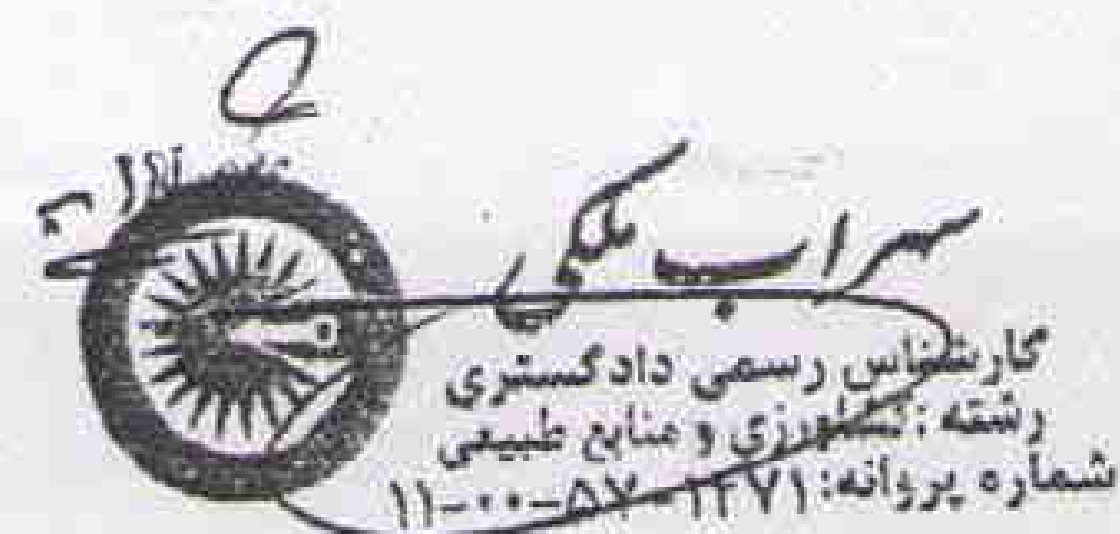 سهراب ملکی
کارشناس رسمی دادگستری
رشته: کشاورزی و منابع طبیعی
شماره پروانه: ۱۱-۰۰-۵۷-۱۲۷۱